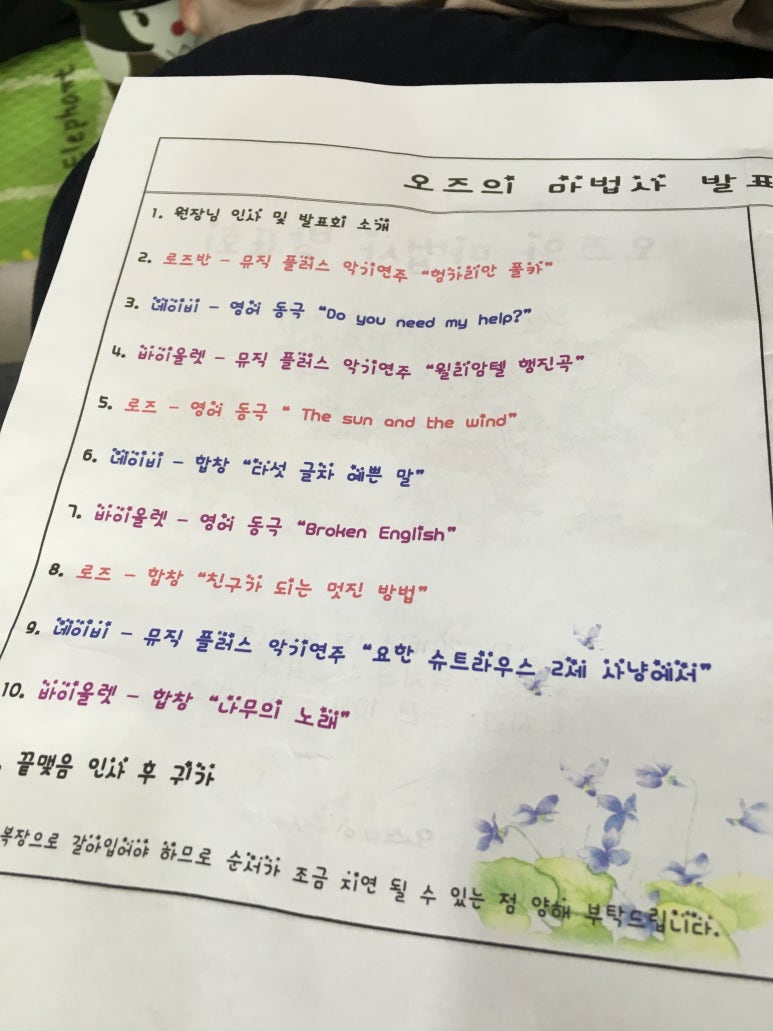 Elephant
오즈의 마법사 발표
1. 원장님 인사 및 발표회 소개
2. 로즈반 – 뮤직 플러스 악기연주 “헝가리안 폴카”
3. 네이비 – 영어 동극 “Do you need my help?”
4. 바이올렛 – 뮤직 플러스 악기연주 “윌리암텔 행진곡”
5. 로즈 – 영어 동극 “ The sun and the wind”
6. 네이비 – 합창 “다섯 글자 예쁜 말”
7. 바이올렛 – 영어 동극 “Broken English”
8. 로즈 – 합창 “친구가 되는 멋진 방법”
9. 네이비 – 뮤직 플러스 악기연주 “요한 슈트라우스 2세 사냥에서”
10. 바이올렛 – 합창 “나무의 노래”
. 끝맺음 인사 후 귀가
복장으로 갈아입어야 하므로 순서가 조금 지연 될 수 있는 점 양해 부탁드립니다.